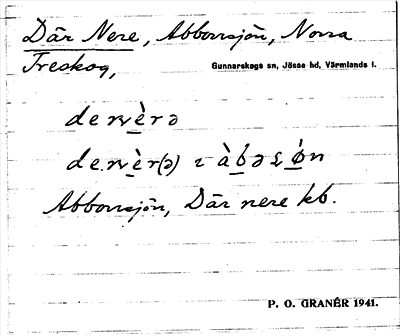 Där Nere, Abborrsjön, Norra
Treskog,
Gunnarskogs sn, Jösse hd, Värmlands l.
Abborrsjön, Där nere kb.
P. O. GRANÉR 1941.